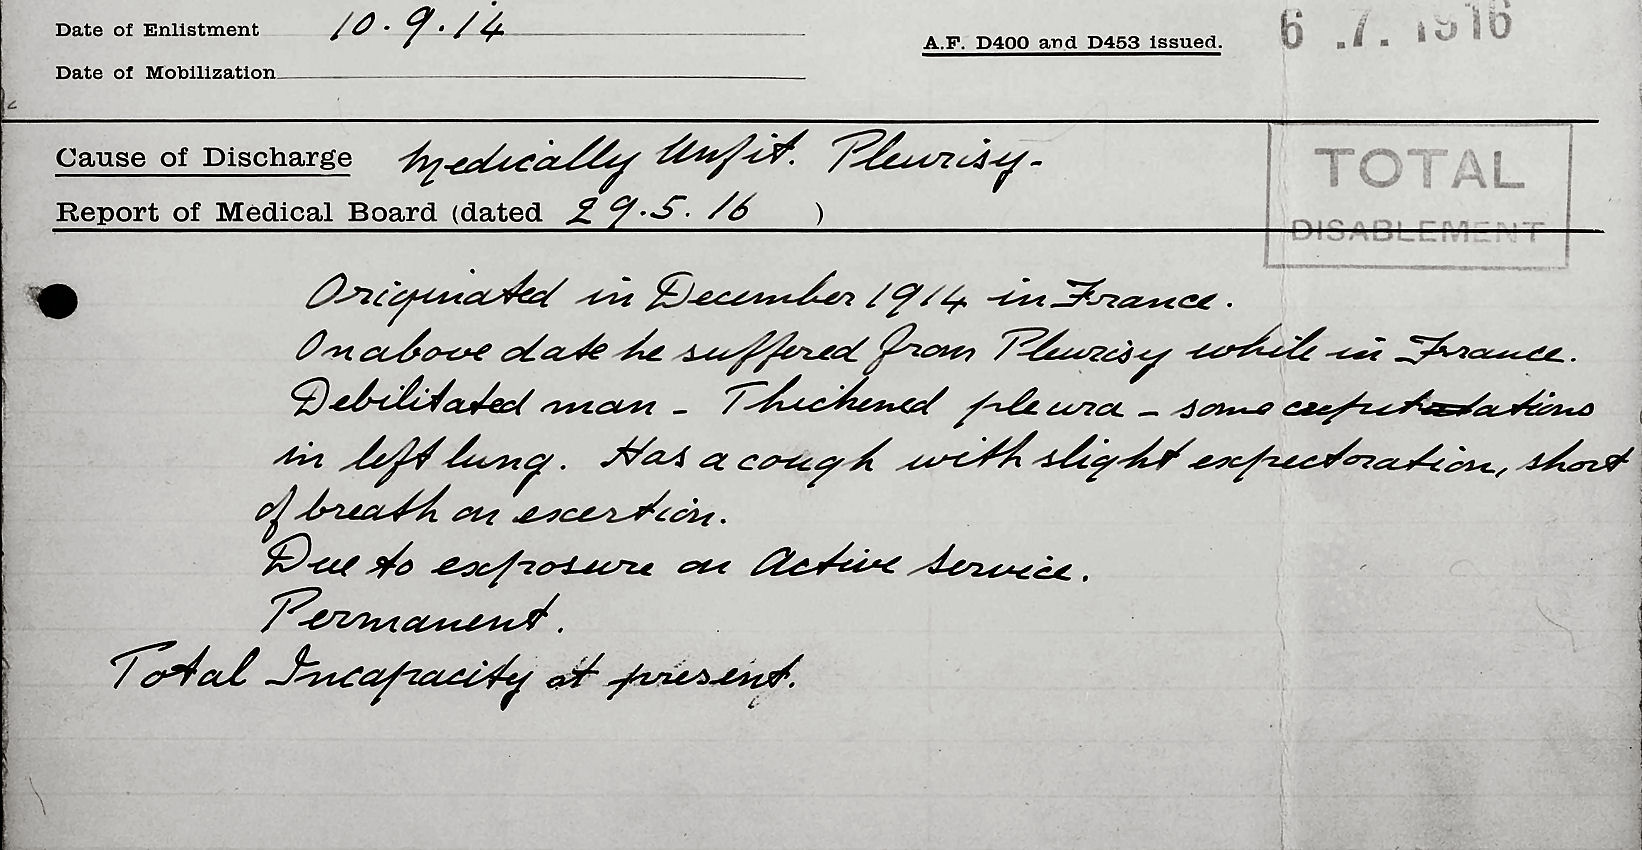 Date of Enlistment 10.9.14
A.F. D400 and D453 issued. 6.7.1916
Date of Mobilization
Cause of Discharge Medically Unfit. Pleurisy-
TOTAL
Report of Medical Board (dated 29.5.16 )
DISABLEMENT
Originated in December 1914 in France.
On above date he suffered from Pleurisy while in France.
Debilitated man - Thickened pleura - some
in left lung. Has a cough with slight expectoration, short
of breath on exertion.
Due to exposure on Active Service.
Permanent.
Total Incapacity at present.